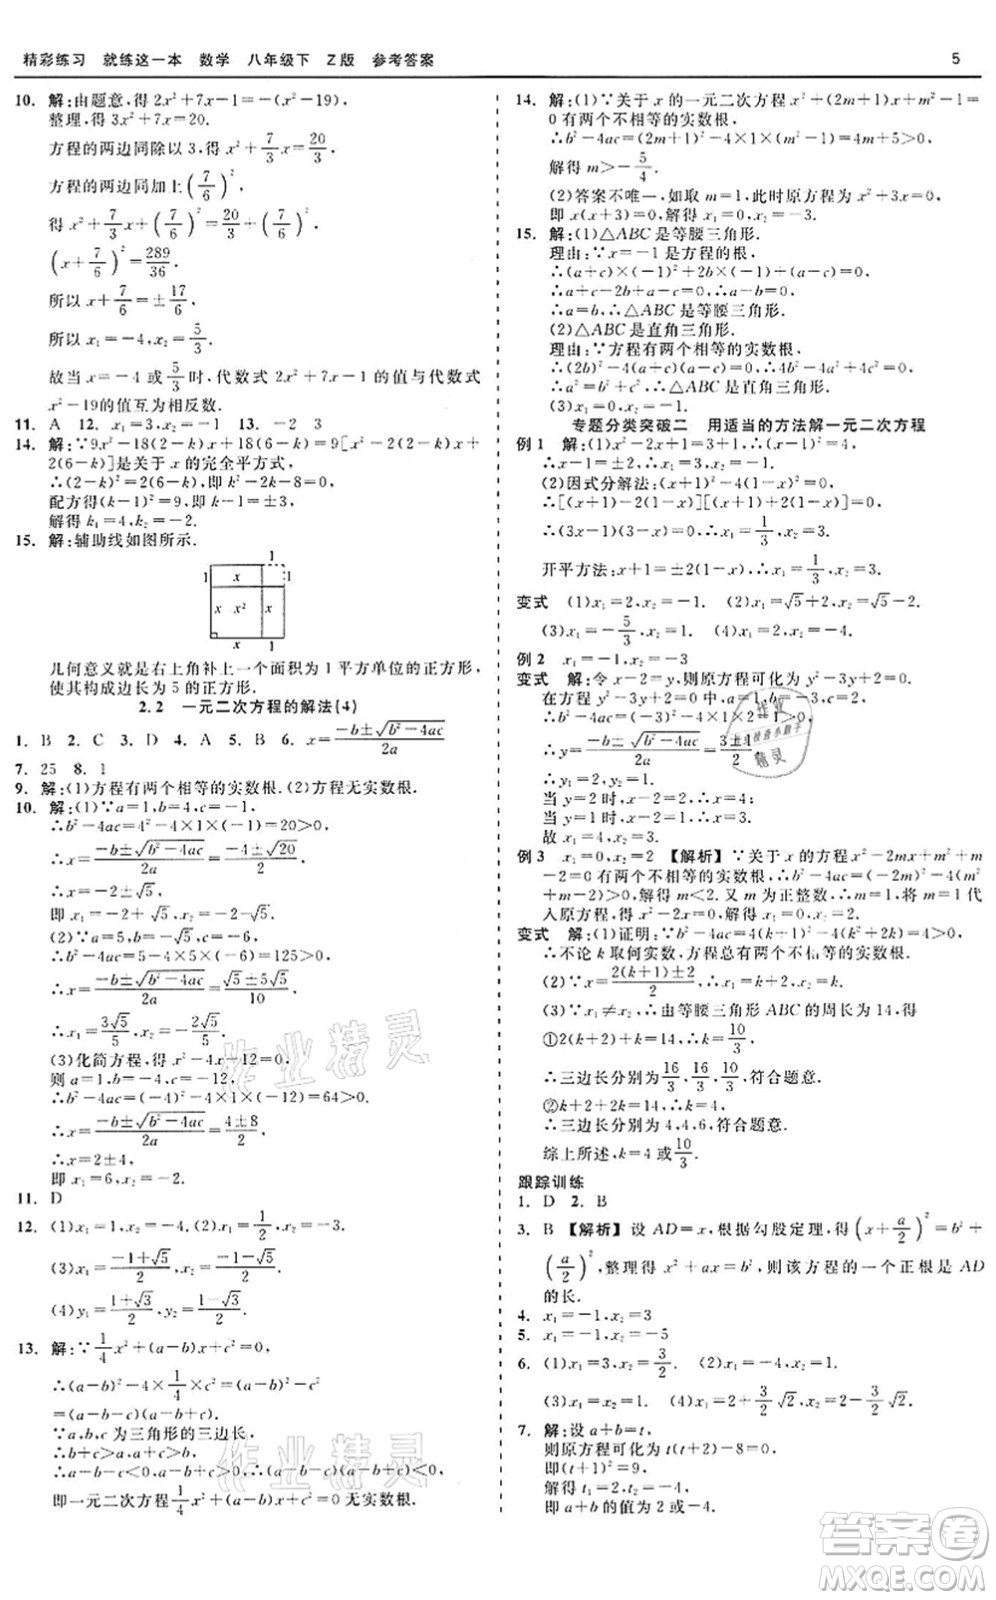 精彩练习 就练这一本 数学 八年级下 Z版 参考答案 5
10. 解:由题意,得2x²+7x-1=-(x²-19).
整理,得3x²+7x=20.
方程的两边同除以3,得x²+7/3x=20/3.
方程的两边同加上(7/6)²,
得x²+7/3x+(7/6)²=20/3+(7/6)²,
(x+7/6)²=289/36.
所以x+7/6=±17/6.
所以x₁=-4,x₂=5/3.
故当x=-4或5/3时,代数式2x²+7x-1的值与代数式
x²-19的值互为相反数.
11. A 12. x₁=3,x₂=-1 13. -2
14. 解:∵9x²-18(2-k)x+18(6-k)=9[x²-2(2-k)x+
2(6-k)]是关于x的完全平方式,
∴(2-k)²=2(6-k),即k²-2k-8=0.
配方得(k-1)²=9,即k-1=±3,
解得k₁=4,k₂=-2.
15. 解:辅助线如图所示.
1
1 x 1
x x² x
x 1
几何意义就是右上角补上一个面积为1平方单位的正方形,
使其构成边长为5的正方形.
2.2 一元二次方程的解法(4)
1. B 2. C 3. D 4. A 5. B 6. x=(-b±√(b²-4ac))/2a
7. 25 8. 1
9. 解:(1)方程有两个相等的实数根.(2)方程无实数根.
10. 解:(1)∵a=1,b=4,c=-1,
∴b²-4ac=4²-4×1×(-1)=20>0,
∴x=(-b±√(b²-4ac))/2a=(-4±√20)/2,
∴x=-2±√5,
即x₁=-2+√5,x₂=-2-√5.
(2)∵a=5,b=-√5,c=-6,
∴b²-4ac=5-4×5×(-6)=125>0,
∴x=(-b±√(b²-4ac))/2a=(√5±5√5)/10,
∴x₁=3√5/5,x₂=-2√5/5.
(3)化简方程,得x²-4x-12=0,
则a=1,b=-4,c=-12,
∴b²-4ac=(-4)²-4×1×(-12)=64>0,
∴x=(-b±√(b²-4ac))/2a=(4±8)/2,
∴x=2±4,
即x₁=6,x₂=-2.
11. D
12. (1)x₁=1,x₂=-4 (2)x₁=1/2,x₂=-1
(3)x₁=(-1+√5)/2,x₂=(-1-√5)/2
(4)y₁=(1+√3)/2,y₂=(1-√3)/2
13. 解:∵1/4x²+(a-b)x+c²=0,
∴(a-b)²-4×1/4×c²=(a-b)²-c²
=(a-b-c)(a-b+c).
∵a,b,c为三角形的三边长,
∴b+c>a,a+c>b,
∴a-b-c<0,a-b+c>0,
∴(a-b-c)(a-b+c)<0,
即一元二次方程1/4x²+(a-b)x+c²=0无实数根.
14. 解:(1)∵关于x的一元二次方程x²+(2m+1)x+m²-1=
0有两个不相等的实数根,
∴b²-4ac=(2m+1)²-4×1×(m²-1)=4m+5>0,
解得m>-5/4.
(2)答案不唯一,如取m=1,此时原方程为x²+3x=0,
即x(x+3)=0,解得x₁=0,x₂=-3.
15. 解:(1)△ABC是等腰三角形.
理由:∵x=-1是方程的根,
∴(a+c)×(-1)²+2b×(-1)+(a-c)=0,
∴a+c-2b+a-c=0,∴a-b=0,
∴a=b,∴△ABC是等腰三角形.
(2)△ABC是直角三角形.
理由:∵方程有两个相等的实数根,
∴(2b)²-4(a+c)(a-c)=0,
∴a²=b²+c²,∴△ABC是直角三角形.
(3)x₁=0,x₂=-1.
专题分类突破二 用适当的方法解一元二次方程
例1 解:(1)x²-2x+1=3+1,(x-1)²=4,
∴x-1=±2,∴x₁=3,x₂=-1.
(2)因式分解法:(x+1)²-4(x-1)²=0,
∴[(x+1)-2(x-1)][(x+1)+2(x-1)]=0,
∴(3-x)(3x-1)=0,∴x₁=1/3,x₂=3.
开平方法:x+1=±2(x-1),∴x₁=1/3,x₂=3.
变式 (1)x₁=2,x₂=-1. (2)x₁=√5+2,x₂=√5-2.
(3)x₁=-1,x₂=6/5. (4)x₁=2,x₂=-4.
例2 x₁=-1,x₂=-3
变式 解:令x-2=y,则原方程可化为y²-3y+2=0.
在方程y²-3y+2=0中,a=1,b=-3,c=2,b²-4ac=1>0,
∴y₁=2,y₂=1.
当y=2时,x-2=2,∴x=4;
故x₁=4,x₂=3.
例3 x₁=0,x₂=2 【解析】∵关于x的方程x²-2mx+m²+m
-2=0有两个不相等的实数根,∴b²-4ac=(-2m)²-4(m²
+m-2)>0,解得m<2.又m为正整数,∴m=1,将m=1代
入原方程,得x²-2x=0,解得x₁=0,x₂=2.
变式 解:(1)证明:∵b²-4ac=4(k+1)²-4(k²+2k)=4>0,
∴不论k取何实数,方程总有两个不相等的实数根.
(2)∵x=(2(k+1)±2)/2,∴x₁=k+2,x₂=k.
(3)∵x₁≠x₂,∴由等腰三角形ABC的周长为14,得
①2(k+2)+k=14,∴k=10/3,
∴三边长分别为16/3,16/3,10/3,符合题意.
②k+2+2k=14,∴k=4,
∴三边长分别为4,4,6,符合题意.
综上所述,k=4或10/3.
跟踪训练
1. D 2. B
3. B 【解析】设AD=x,根据勾股定理,得(x+a/2)²=b²+
(a/2)²,整理得x²+ax=b²,则该方程的一个正根是AD
的长.
4. x₁=-1,x₂=3
5. x₁=-1,x₂=-5
6. (1)x₁=3,x₂=3/2. (2)x₁=4,x₂=-1.
(3)x₁=3/2√2,x₂=1/2√2. (4)x₁=1,x₂=-2.
7. 解:设a+b=t,
则原方程可化为t(t+2)-8=0,
即(t+1)²=9.
解得t₁=2,t₂=-4.
即a+b的值为2或-4.
作业精灵
作业精灵
答案圈
MXQE.COM